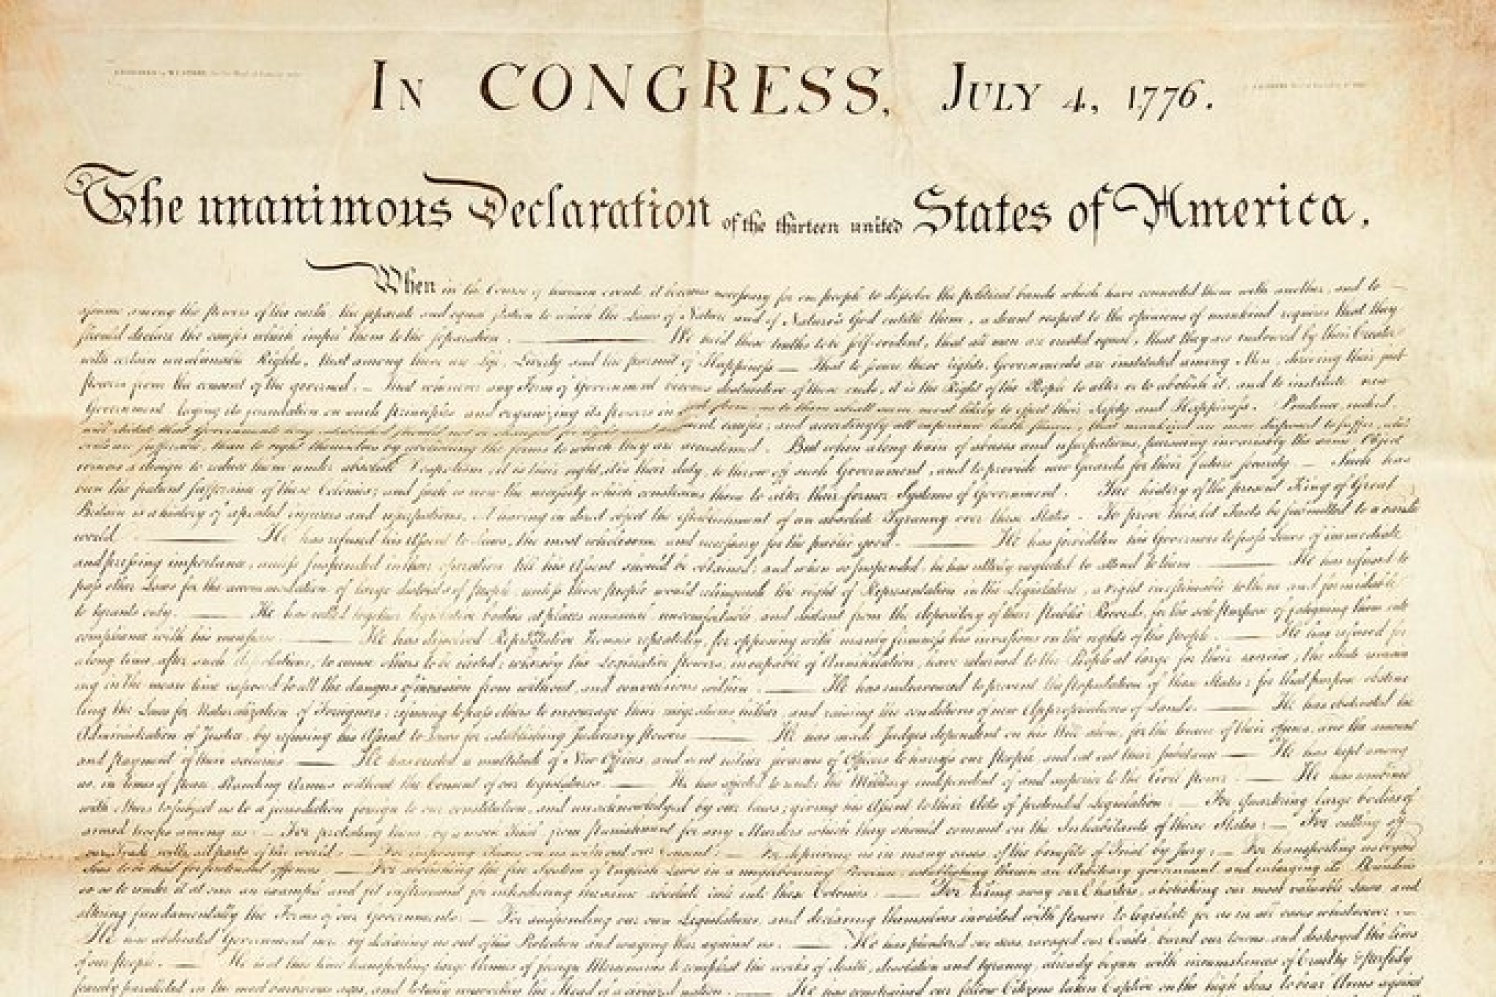 In CONGRESS, July 4, 1776.
The unanimous Declaration of the thirteen united States of America.
When in the Course of human events, it becomes necessary for one people to dissolve the political bands which have connected them with another, and to
assume among the powers of the earth, the separate and equal station to which the Laws of Nature and of Nature's God entitle them, a decent respect to the opinions of mankind requires that they
should declare the causes which impel them to the separation. — We hold these truths to be self-evident, that all men are created equal, that they are endowed by their Creator
with certain unalienable Rights, that among these are Life, Liberty and the pursuit of Happiness — That to secure these rights, Governments are instituted among Men, deriving their just
powers from the consent of the governed, — That whenever any Form of Government becomes destructive of these ends, it is the Right of the People to alter or to abolish it, and to institute new
Government, laying its foundation on such principles and organizing its powers in such form, as to them shall seem most likely to effect their Safety and Happiness. Prudence, indeed,
will dictate that Governments long established should not be changed for light and transient causes; and accordingly all experience hath shewn, that mankind are more disposed to suffer, while
evils are sufferable, than to right themselves by abolishing the forms to which they are accustomed. But when a long train of abuses and usurpations, pursuing invariably the same Object
evinces a design to reduce them under absolute Despotism, it is their right, it is their duty, to throw off such Government, and to provide new Guards for their future security. — Such has
been the patient sufferance of these Colonies; and such is now the necessity which constrains them to alter their former Systems of Government. The history of the present King of Great
Britain is a history of repeated injuries and usurpations, all having in direct object the establishment of an absolute Tyranny over these States. To prove this, let Facts be submitted to a candid
world. — He has refused his Assent to Laws, the most wholesome and necessary for the public good. — He has forbidden his Governors to pass Laws of immediate
and pressing importance, unless suspended in their operation till his Assent should be obtained; and when so suspended, he has utterly neglected to attend to them. — He has refused to
pass other Laws for the accommodation of large districts of people, unless those people would relinquish the right of Representation in the Legislature, a right inestimable to them and formidable
to tyrants only. — He has called together legislative bodies at places unusual, uncomfortable, and distant from the depository of their Public Records, for the sole purpose of fatiguing them into
compliance with his measures. — He has dissolved Representative Houses repeatedly, for opposing with manly firmness his invasions on the rights of the people. — He has refused for
a long time, after such dissolutions, to cause others to be elected; whereby the Legislative powers, incapable of Annihilation, have returned to the People at large for their exercise; the State remain
ing in the mean time exposed to all the dangers of invasion from without, and convulsions within. — He has endeavoured to prevent the population of these States; for that purpose obstruc
ting the Laws for Naturalization of Foreigners; refusing to pass others to encourage their migrations hither, and raising the conditions of new Appropriations of Lands. — He has obstructed the
Administration of Justice, by refusing his Assent to Laws for establishing Judiciary powers — He has made Judges dependent on his Will alone, for the tenure of their offices, and the amount
and payment of their salaries — He has erected a multitude of New Offices, and sent hither swarms of Officers to harrass our People, and eat out their substance — He has kept among
us, in times of peace, Standing Armies without the Consent of our legislatures. — He has affected to render the Military independent of and superior to the Civil power. — He has combined
with others to subject us to a jurisdiction foreign to our constitution, and unacknowledged by our laws; giving his Assent to their Acts of pretended Legislation: — For quartering large bodies of
armed troops among us: — For protecting them, by a mock Trial, from punishment for any Murders which they should commit on the Inhabitants of these States: — For cutting off
our Trade with all parts of the world: — For imposing Taxes on us without our Consent: — For depriving us in many cases, of the benefits of Trial by Jury: — For transporting us beyond
Seas to be tried for pretended offences — For abolishing the free System of English Laws in a neighbouring Province, establishing therein an Arbitrary government, and enlarging its Boundaries
so as to render it at once an example and fit instrument for introducing the same absolute rule into these Colonies: — For taking away our Charters, abolishing our most valuable Laws, and
altering fundamentally the Forms of our Governments: — For suspending our own Legislatures, and declaring themselves invested with power to legislate for us in all cases whatsoever. —
He has abdicated Government here, by declaring us out of his Protection and waging War against us. — He has plundered our seas, ravaged our Coasts, burnt our towns, and destroyed the lives
of our people. — He is at this time transporting large Armies of foreign Mercenaries to compleat the works of death, desolation and tyranny, already begun with circumstances of Cruelty & perfidy
scarcely paralleled in the most barbarous ages, and totally unworthy the Head of a civilized nation. — He has constrained our fellow Citizens taken Captive on the high Seas to bear Arms against